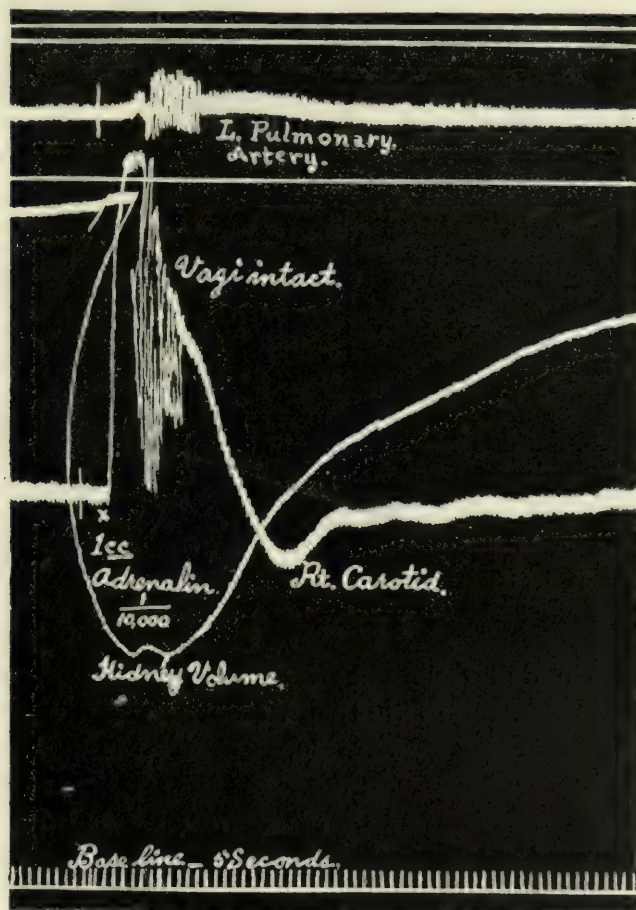 L. Pulmonary.
Artery.
Vagi intact.
x
1cc
Adrenalin.
1
10,000
Rt. Carotid.
Kidney Volume.
Base line – 5 Seconds.